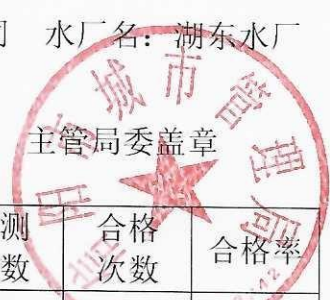 水厂名：湖东水厂
主管局委盖章
城市管理局
测数 合格次数 合格率